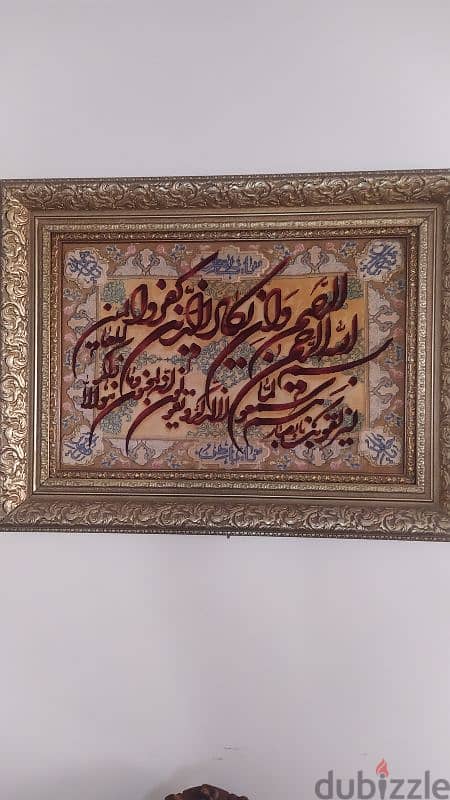 بسم الله الرحمن الرحيم
وان یکاد الذین کفروا
لیزلقونک بابصارهم لما سمعوا الذکر ویقولون انه لمجنون وما هو الا ذکر للعالمین
dubizzle